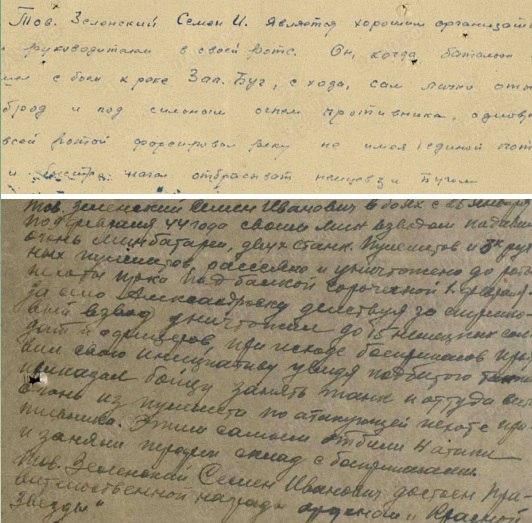 Тов. Зеленский Семен И. является хорошим организат
и руководителем в своей роте. Он, когда батальон
шел с боем к реке Зап. Буг, с хода, сам лично оты
брод и под сильным огнем противника, одновр
всей ротой форсировал реку не имея единой пот
и быстро начал отбрасывать немцев за Бугом
Тов. Зеленский Семен Иванович в боях с 26 января
по февраля 44 года своим мин взводом подавил
огонь минбатареи, двух станк. пулеметов и 3х руч
ных пулеметов, рассеяно и уничтожено до роты
пехоты пр-ка под балкой Сорочьей 1 февраля
за село Александровку действуя за стрелко
вый взвод уничтожил до 15 немецких сол
дат и офицеров при исходе боеприпасов про
вил свою инициативу увидя подбитого танк
приказал бойцу занять танк и оттуда вел
огонь из пулемета по атакующей пехоте про
тивника. Этим самым отбили 4 атаки
и заняли передом склад с боеприпасами
Тов. Зеленской Семен Иванович достоен пра
вительственной награды орденом „Красной
Звезды"